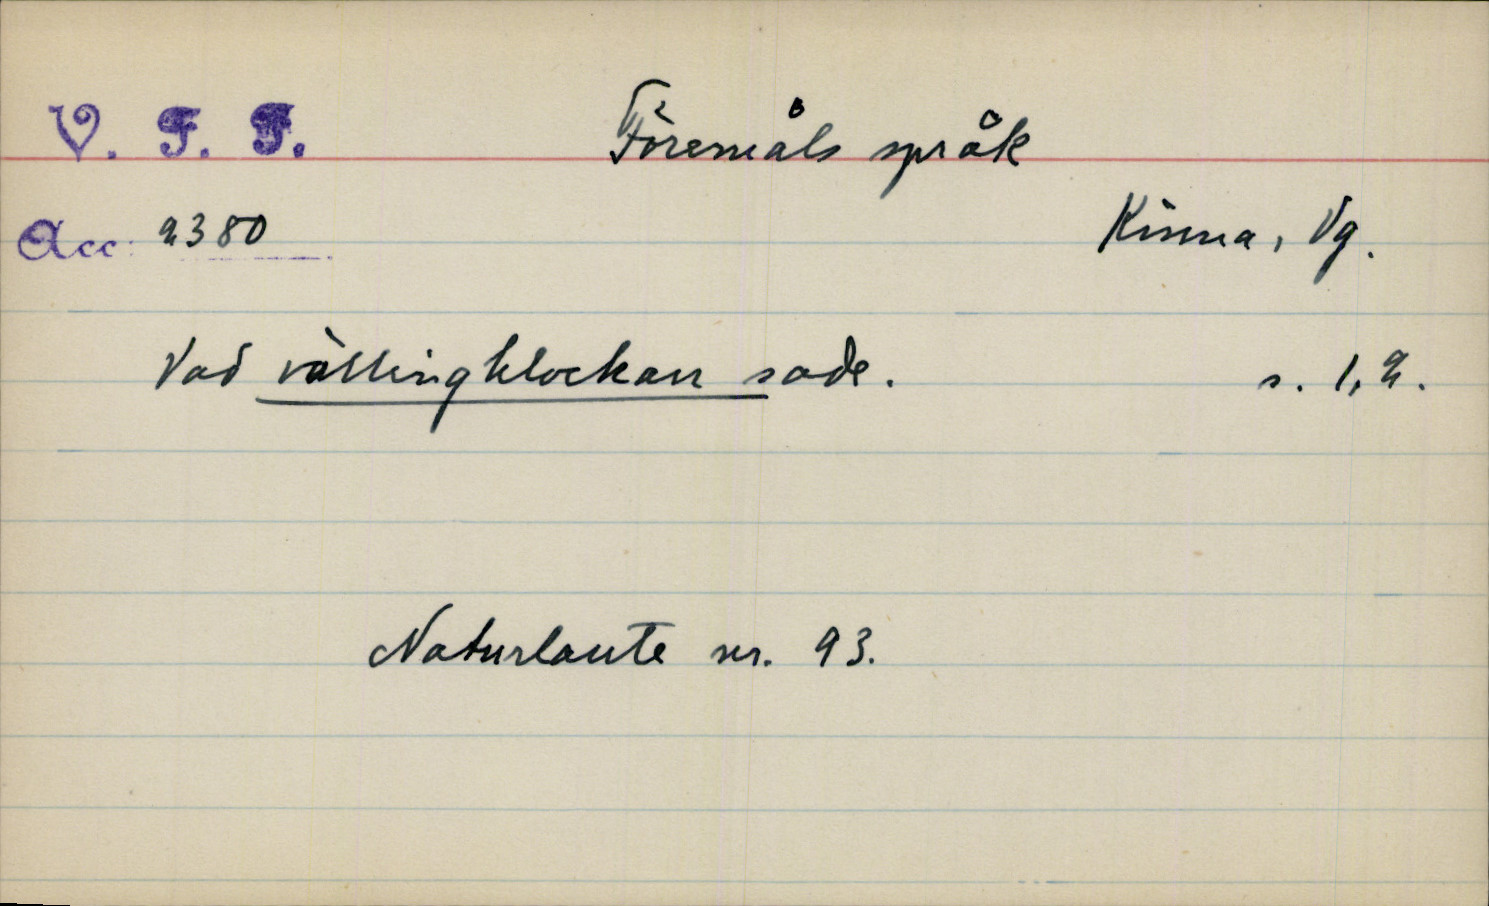 V. F. F. Föremåls språk
Acc: 2380 Kinna, Vg.
Vad vällingklockan sade. s. 1, 2.
Naturlaute nr. 93.